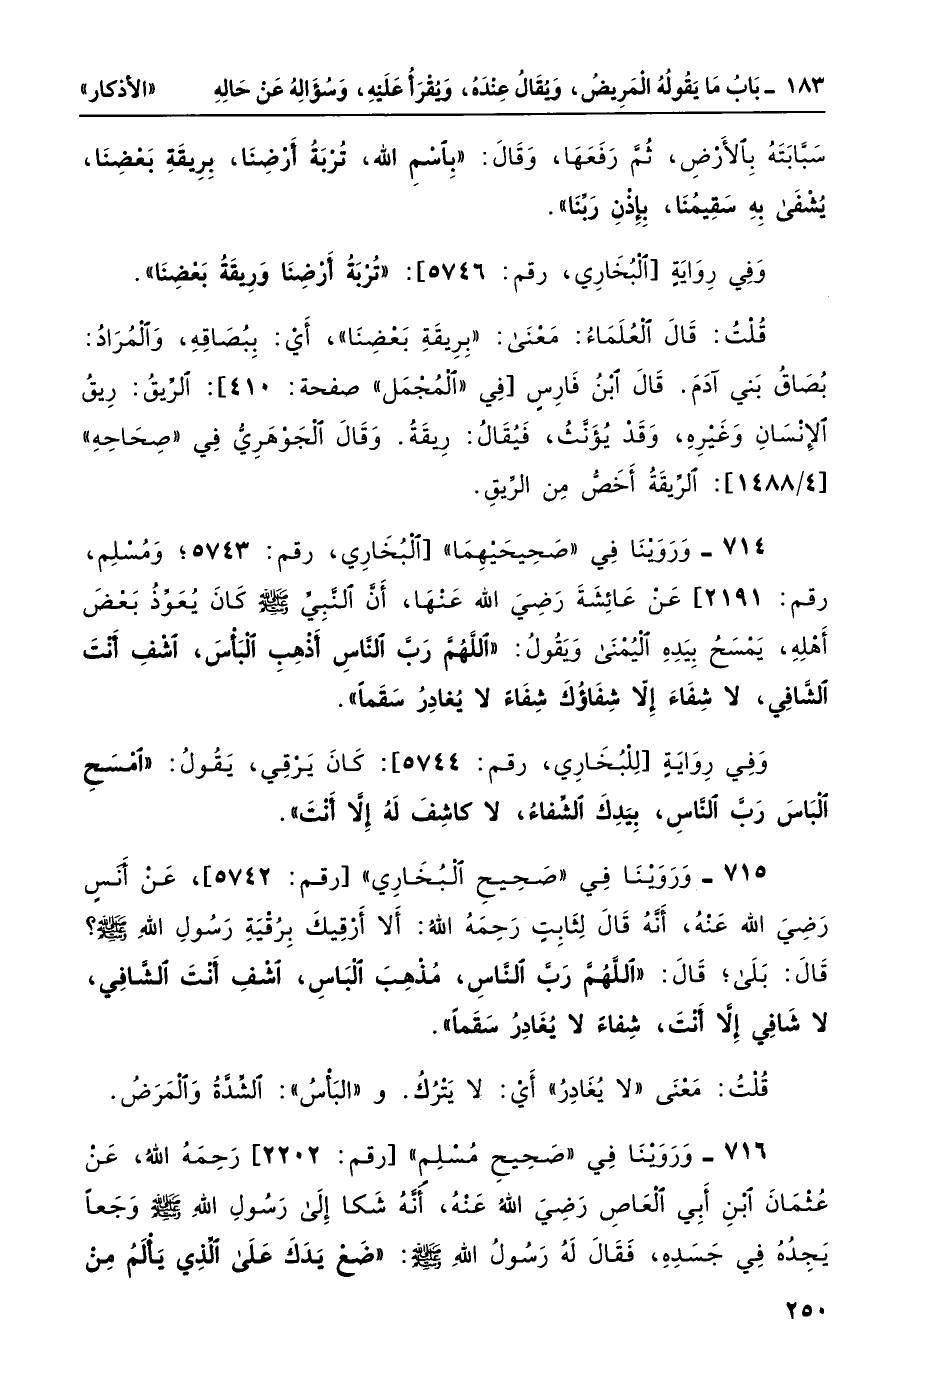 ١٨٣ ـ بَابُ مَا يَقُولُهُ الْمَرِيضُ، وَيُقَالُ عِنْدَهُ، وَيُقْرَأُ عَلَيْهِ، وَسُؤَالِهُ عَنْ حَالِهِ «الأذكار»
سَبَّابَتَهُ بِٱلأَرْضِ، ثُمَّ رَفَعَهَا، وَقَالَ: «بِٱسْمِ الله، تُرْبَةُ أَرْضِنَا، بِرِيقَةِ بَعْضِنَا،
يُشْفَىٰ بِهِ سَقِيمُنَا، بِإِذْنِ رَبِّنَا».
وَفِي رِوَايَةٍ [ٱلْبُخَارِي، رقم: ٥٧٤٦]: «تُرْبَةُ أَرْضِنَا وَرِيقَةُ بَعْضِنَا».
قُلْتُ: قَالَ ٱلْعُلَمَاءُ: مَعْنَىٰ: «بِرِيقَةِ بَعْضِنَا»، أَيْ: بِبُصَاقِهِ، وَٱلْمُرَادُ:
بُصَاقُ بَنِي آدَمَ. قَالَ ٱبْنُ فَارِسٍ [فِي «ٱلْمُجْمَل» صفحة: ٤١٠]: ٱلرِّيقُ: رِيقُ
ٱلإِنْسَانِ وَغَيْرِهِ، وَقَدْ يُؤَنَّثُ، فَيُقَالُ: رِيقَةُ. وَقَالَ ٱلْجَوْهَرِيُّ فِي «صِحَاحِهِ»
[١٤٨٨/٤]: ٱلرِّيقَةُ أَخَصُّ مِن الرِّيقِ.
٧١٤ ـ وَرَوَيْنَا فِي «صَحِيحَيْهِمَا» [ٱلْبُخَارِي، رقم: ٥٧٤٣؛ وَمُسْلِم،
رقم: ٢١٩١] عَنْ عَائِشَةَ رَضِيَ الله عَنْهَا، أَنَّ ٱلنَّبِيَّ ﷺ كَانَ يُعَوِّذُ بَعْضَ
أَهْلِهِ، يَمْسَحُ بِيَدِهِ ٱلْيُمْنَىٰ وَيَقُولُ: «ٱللَّهُمَّ رَبَّ ٱلنَّاسِ أَذْهِبِ ٱلْبَأْسَ، ٱشْفِ أَنْتَ
ٱلشَّافِي، لا شِفَاءَ إِلّا شِفَاؤُكَ شِفَاءً لا يُغادِرُ سَقَماً».
وَفِي رِوَايَةٍ [لِلْبُخَارِي، رقم: ٥٧٤٤]: كَانَ يَرْقِي، يَقُولُ: «ٱمْسَحِ
ٱلْبَاسَ رَبَّ ٱلنَّاسِ، بِيَدِكَ ٱلشِّفاءُ، لا كاشِفَ لَهُ إِلَّا أَنْتَ».
٧١٥ ـ وَرَوَيْنَا فِي «صَحِيحِ ٱلْبُخَارِي» [رقم: ٥٧٤٢]، عَنْ أَنَسٍ
رَضِيَ الله عَنْهُ، أَنَّهُ قَالَ لِثَابِتٍ رَحِمَهُ اللهُ: أَلا أَرْقِيكَ بِرُقْيَةِ رَسُولِ اللهِ ﷺ؟
قَالَ: بَلَىٰ؛ قَالَ: «ٱللَّهُمَّ رَبَّ ٱلنَّاسِ، مُذْهِبَ ٱلْبَاسِ، ٱشْفِ أَنْتَ ٱلشَّافِي،
لا شَافِي إِلَّا أَنْتَ، شِفاءً لا يُغَادِرُ سَقَماً».
قُلْتُ: مَعْنَى «لا يُغَادِرُ» أَيْ: لا يَتْرُكُ. و «البَأْسُ»: ٱلشِّدَّةُ وَٱلْمَرَضُ.
٧١٦ ـ وَرَوَيْنَا فِي «صَحِيحِ مُسْلِمٍ» [رقم: ٢٢٠٢] رَحِمَهُ اللهُ، عَنْ
عُثْمَانَ ٱبْنِ أَبِي ٱلْعَاصِ رَضِيَ اللهُ عَنْهُ، أَنَّهُ شَكا إِلَىٰ رَسُولِ اللهِ ﷺ وَجَعاً
يَجِدُهُ فِي جَسَدِهِ، فَقَالَ لَهُ رَسُولُ اللهِ ﷺ: «ضَعْ يَدَكَ عَلَىٰ ٱلَّذِي يَأْلَمُ مِنْ
٢٥٠